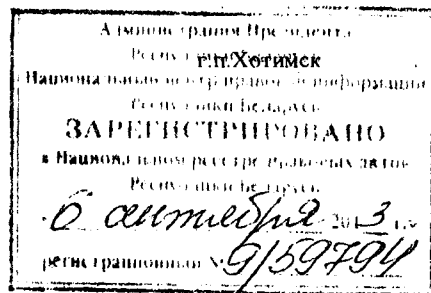 Администрация Президента
Республики г.п.Хотимск
Национальный центр правовой информации
Республики Беларусь
ЗАРЕГИСТРИРОВАНО
в Национальном реестре правовых актов
Республики Беларусь
6 сентября 2013 г.
регистрационный № 9/59794